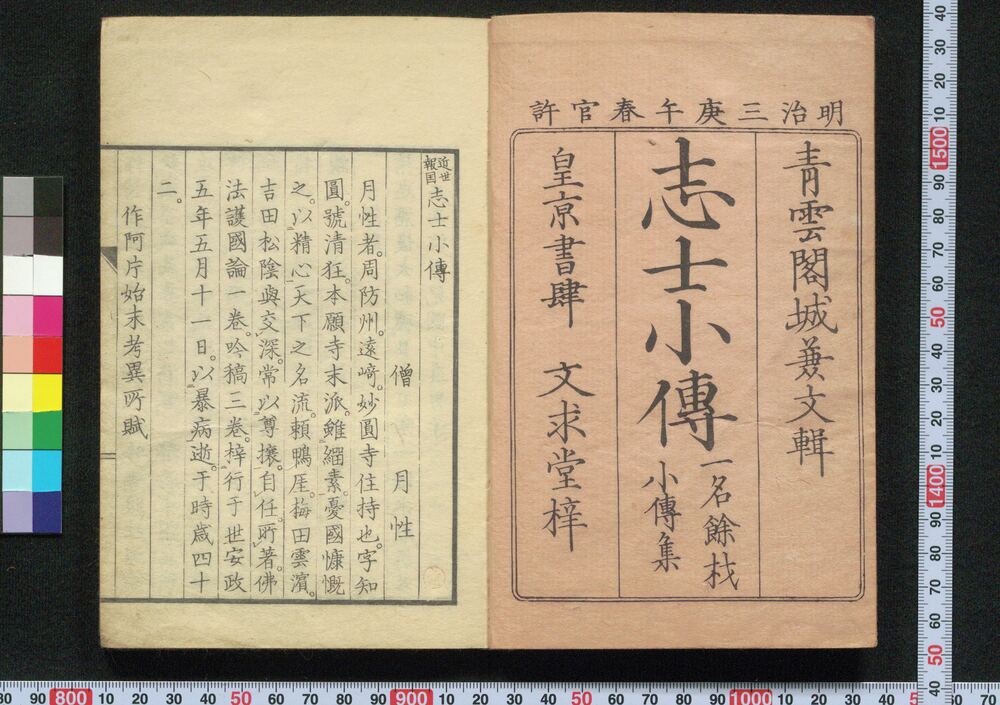 明治三庚午春官許
青雲閣城兼文輯
志士小傳
一名餘材
小傳集
皇京書肆 文求堂梓
近世
報国
志士小傳
僧 月性
月性者。周防州。遠﨑。妙圓寺住持也。字知
圓。號清狂。本願寺末派。雖緇素。憂國慷慨
之。以精心天下之名流。頼鴨厓。梅田雲濱。
吉田松陰與交深。常以尊攘自任。所著。佛
法護國論一卷。吟稿三卷。梓行于世安政
五年五月十一日。以暴病逝。于時歳四十
二。
作阿片始末考異所賦
40 30 20 10 1500 90 80 70 60 50 40 30 20 10 1400 90 80 70 60 50 40
80 90 800 10 20 30 40 50 60 70 80 90 900 10 20 30 40 50 60 70 80 90 1000 10 20 30 40 5 60 70